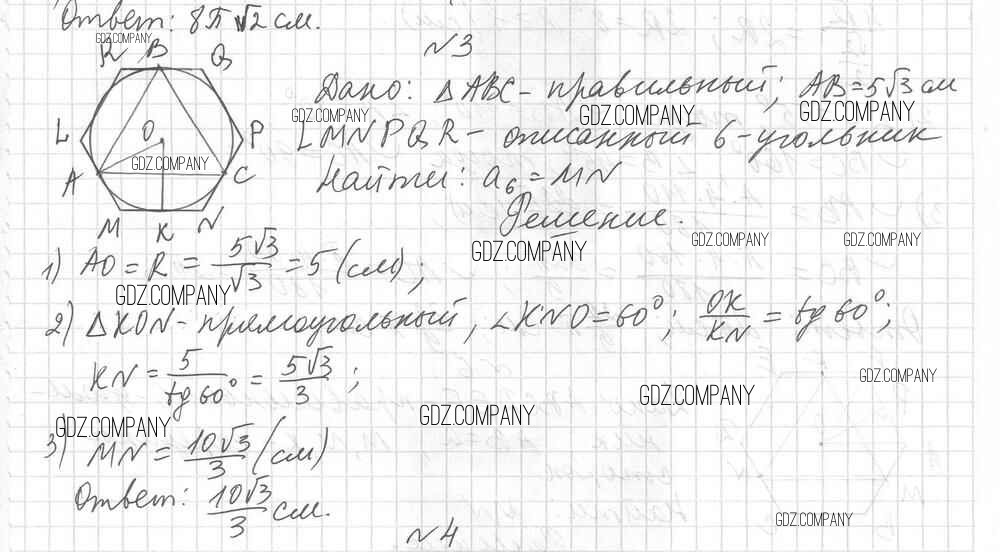 Ответ: 8π√2 см.
GDZ.COMPANY
R B Q
№3
Дано: △ABC - правильный; AB = 5√3 см
GDZ.COMPANY GDZ.COMPANY GDZ.COMPANY
L O P
LMNPQR - описанный 6-угольник
GDZ.COMPANY
A C
Найти: a₆ = MN
M K N
Решение.
GDZ.COMPANY GDZ.COMPANY GDZ.COMPANY
1) AO = R = 5√3/√3 = 5 (см);
GDZ.COMPANY
2) △KON - прямоугольный, ∠KNO = 60°; OK/KN = tg 60°;
KN = 5/tg 60° = 5√3/3;
GDZ.COMPANY GDZ.COMPANY
GDZ.COMPANY GDZ.COMPANY
3) MN = 10√3/3 (см)
Ответ: 10√3/3 см.
GDZ.COMPANY
№4